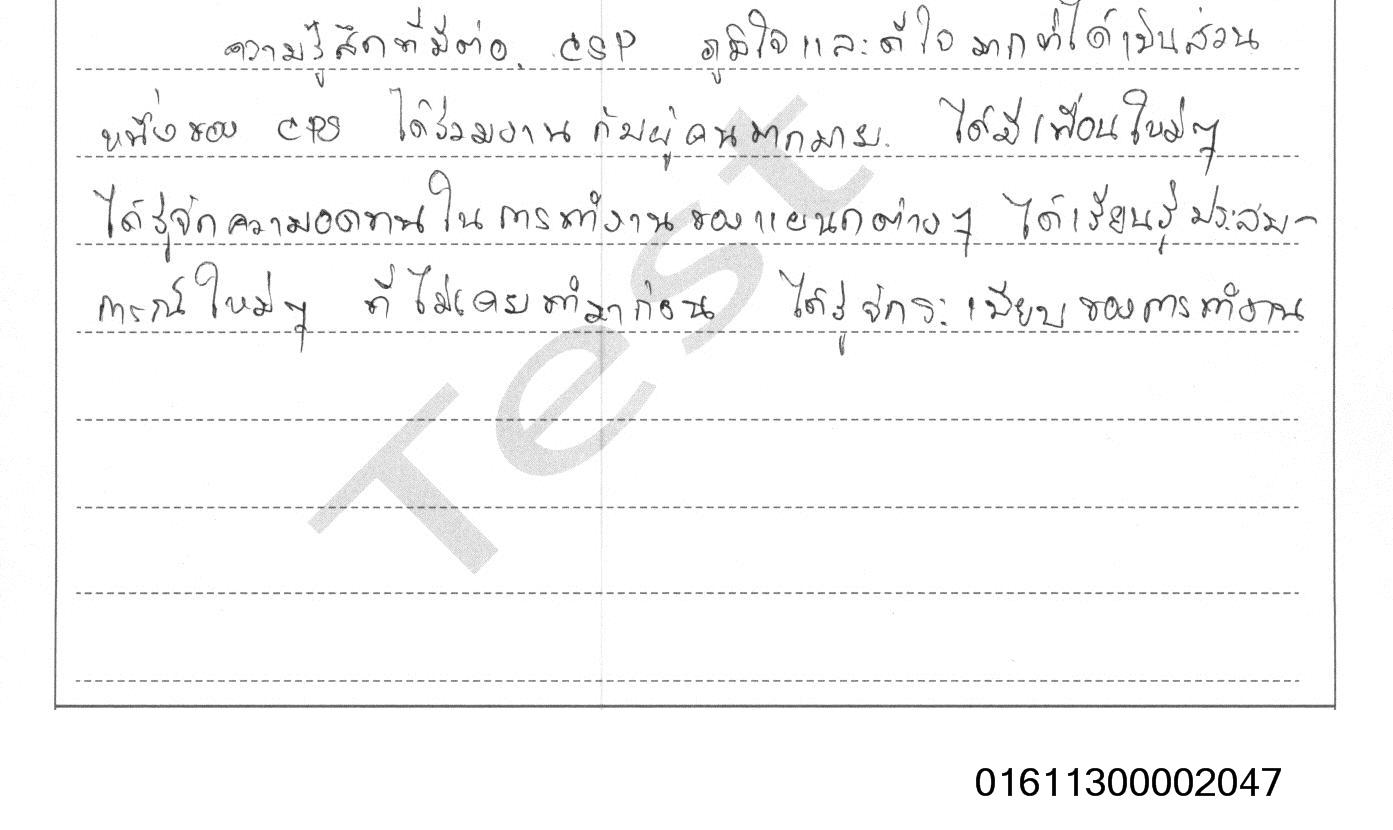 ความรู้สึกที่มีต่อ. CSP ภูมิใจและดีใจมากที่ได้เป็นส่วน
หนึ่งของ CPS ได้ร่วมงานกับผู้คนมากมาย. ได้มีเพื่อนใหม่ๆ
ได้รู้จักความอดทนในการทำงานของแผนกต่างๆ ได้เรียนรู้ประสบ-
การณ์ใหม่ๆ ที่ไม่เคยทำมาก่อน ได้รู้จักระเบียบของการทำงาน
Test
01611300002047